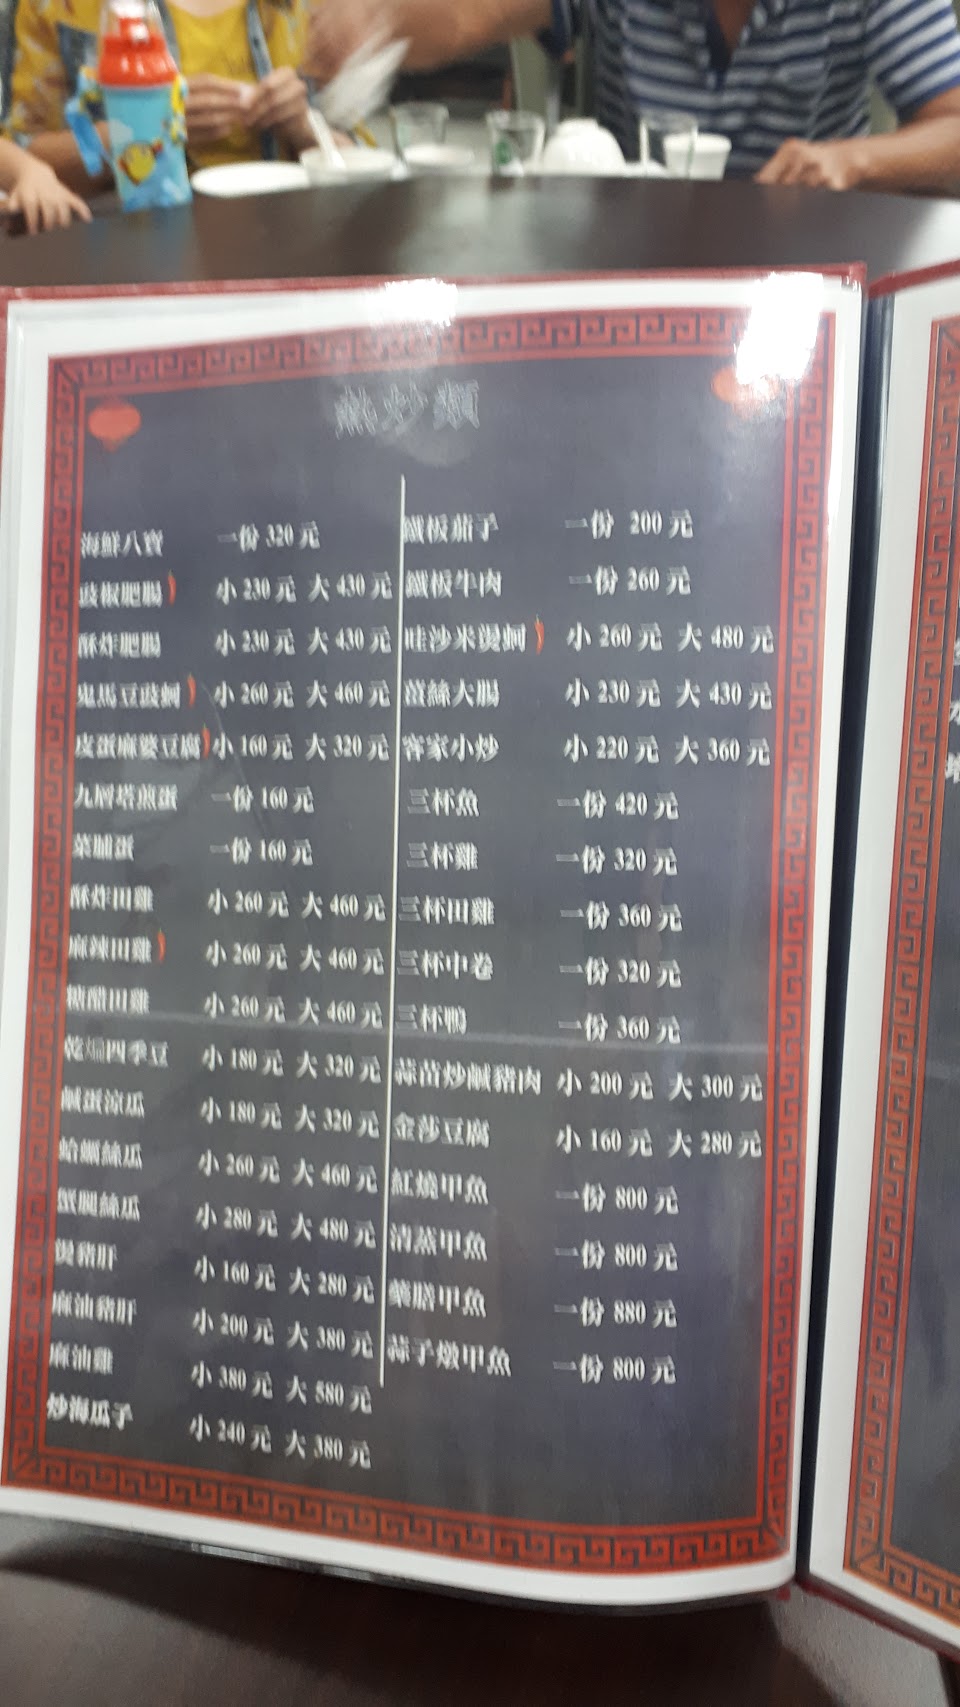 熱炒類
海鮮八寶 一份 320 元
豉椒肥腸 小 230 元 大 430 元
酥炸肥腸 小 230 元 大 430 元
鬼馬豆豉蚵 小 260 元 大 460 元
皮蛋麻婆豆腐 小 160 元 大 320 元
九層塔煎蛋 一份 160 元
菜脯蛋 一份 160 元
酥炸田雞 小 260 元 大 460 元
麻辣田雞 小 260 元 大 460 元
糖醋田雞 小 260 元 大 460 元
乾煸四季豆 小 180 元 大 320 元
鹹蛋涼瓜 小 180 元 大 320 元
蛤蠣絲瓜 小 260 元 大 460 元
蟹腿絲瓜 小 280 元 大 480 元
燙豬肝 小 160 元 大 280 元
麻油豬肝 小 200 元 大 380 元
麻油雞 小 380 元 大 580 元
炒海瓜子 小 240 元 大 380 元
鐵板茄子 一份 200 元
鐵板牛肉 一份 260 元
哇沙米燙蚵 小 260 元 大 480 元
薑絲大腸 小 230 元 大 430 元
客家小炒 小 220 元 大 360 元
三杯魚 一份 420 元
三杯雞 一份 320 元
三杯田雞 一份 360 元
三杯中卷 一份 320 元
三杯鴨 一份 360 元
蒜苗炒鹹豬肉 小 200 元 大 300 元
金莎豆腐 小 160 元 大 280 元
紅燒甲魚 一份 800 元
清蒸甲魚 一份 800 元
藥膳甲魚 一份 880 元
蒜子燉甲魚 一份 800 元